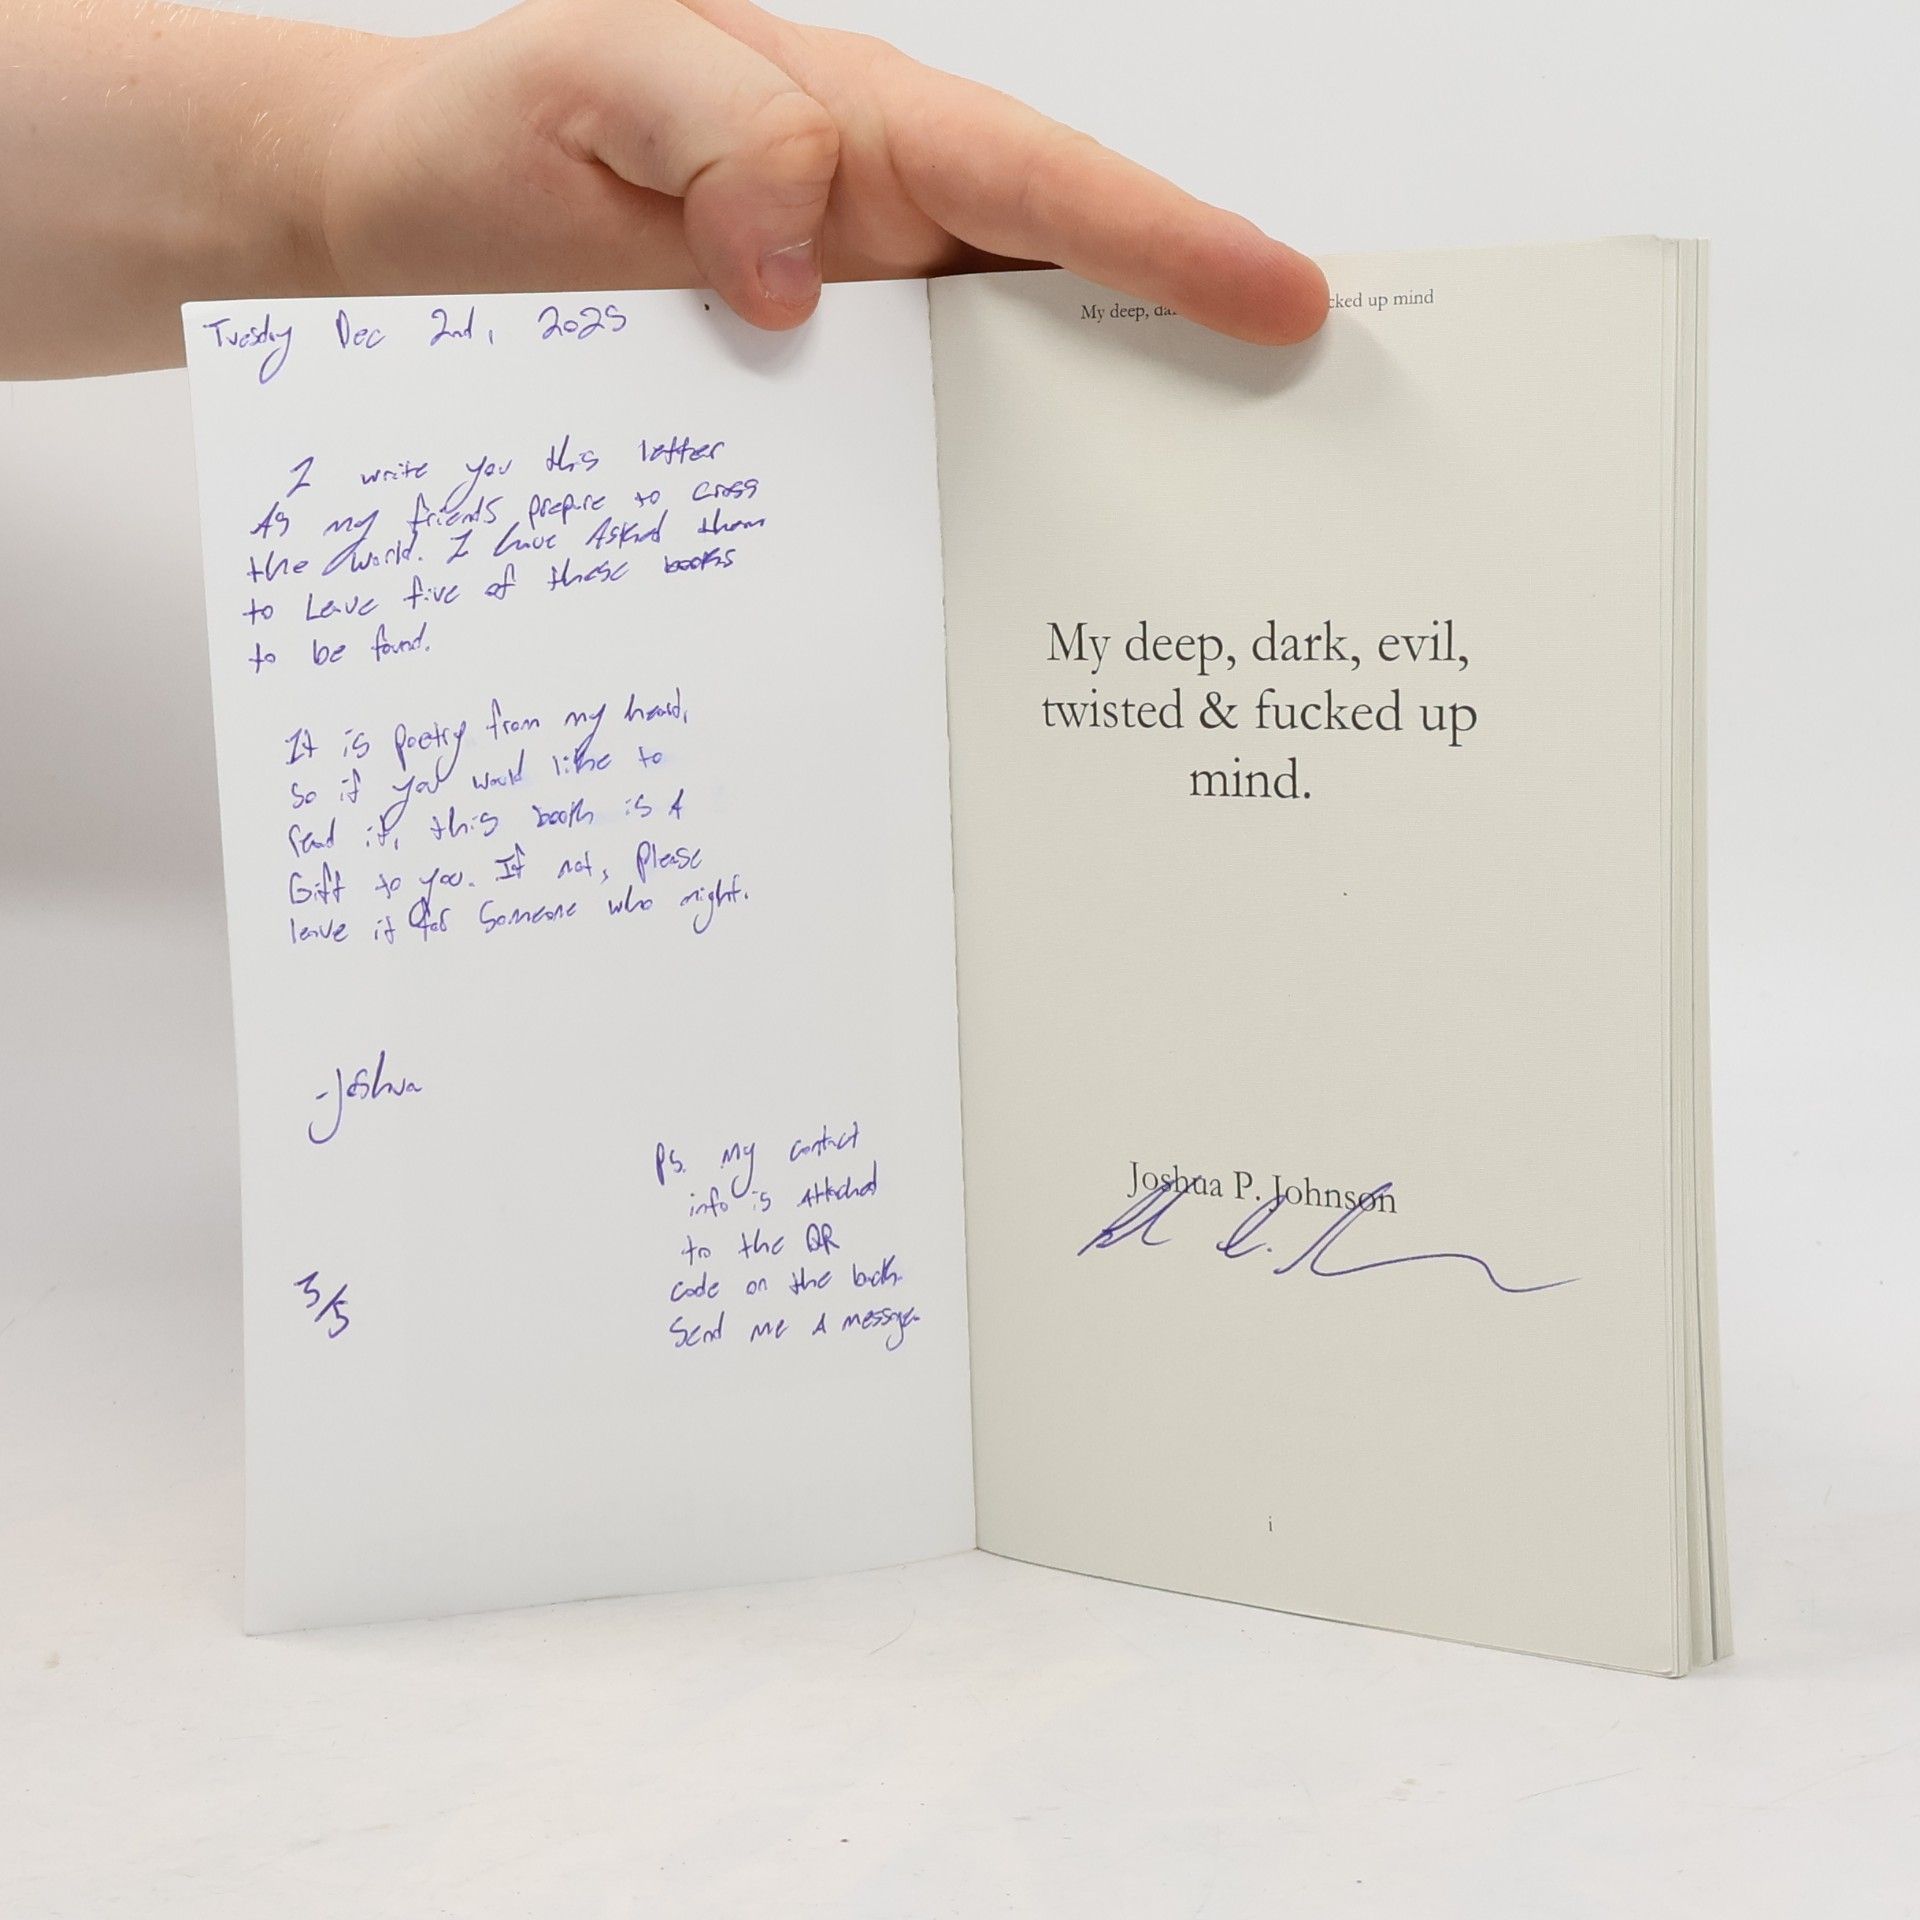 Tuesday Dec 2nd, 2025
I write you this letter
As my friends prepare to cross
the world. I have Asked them
to Leave five of these books
to be found.
It is poetry from my head,
So if you would like to
read it, this book is A
Gift to you. If not, please
leave it for Someone who might.
-Joshua
PS. My contact
info is Attached
to the QR
code on the back.
Send me A message.
3/5
My deep, cked up mind
My deep, dark, evil,
twisted & fucked up
mind.
Joshua P. Johnson
i